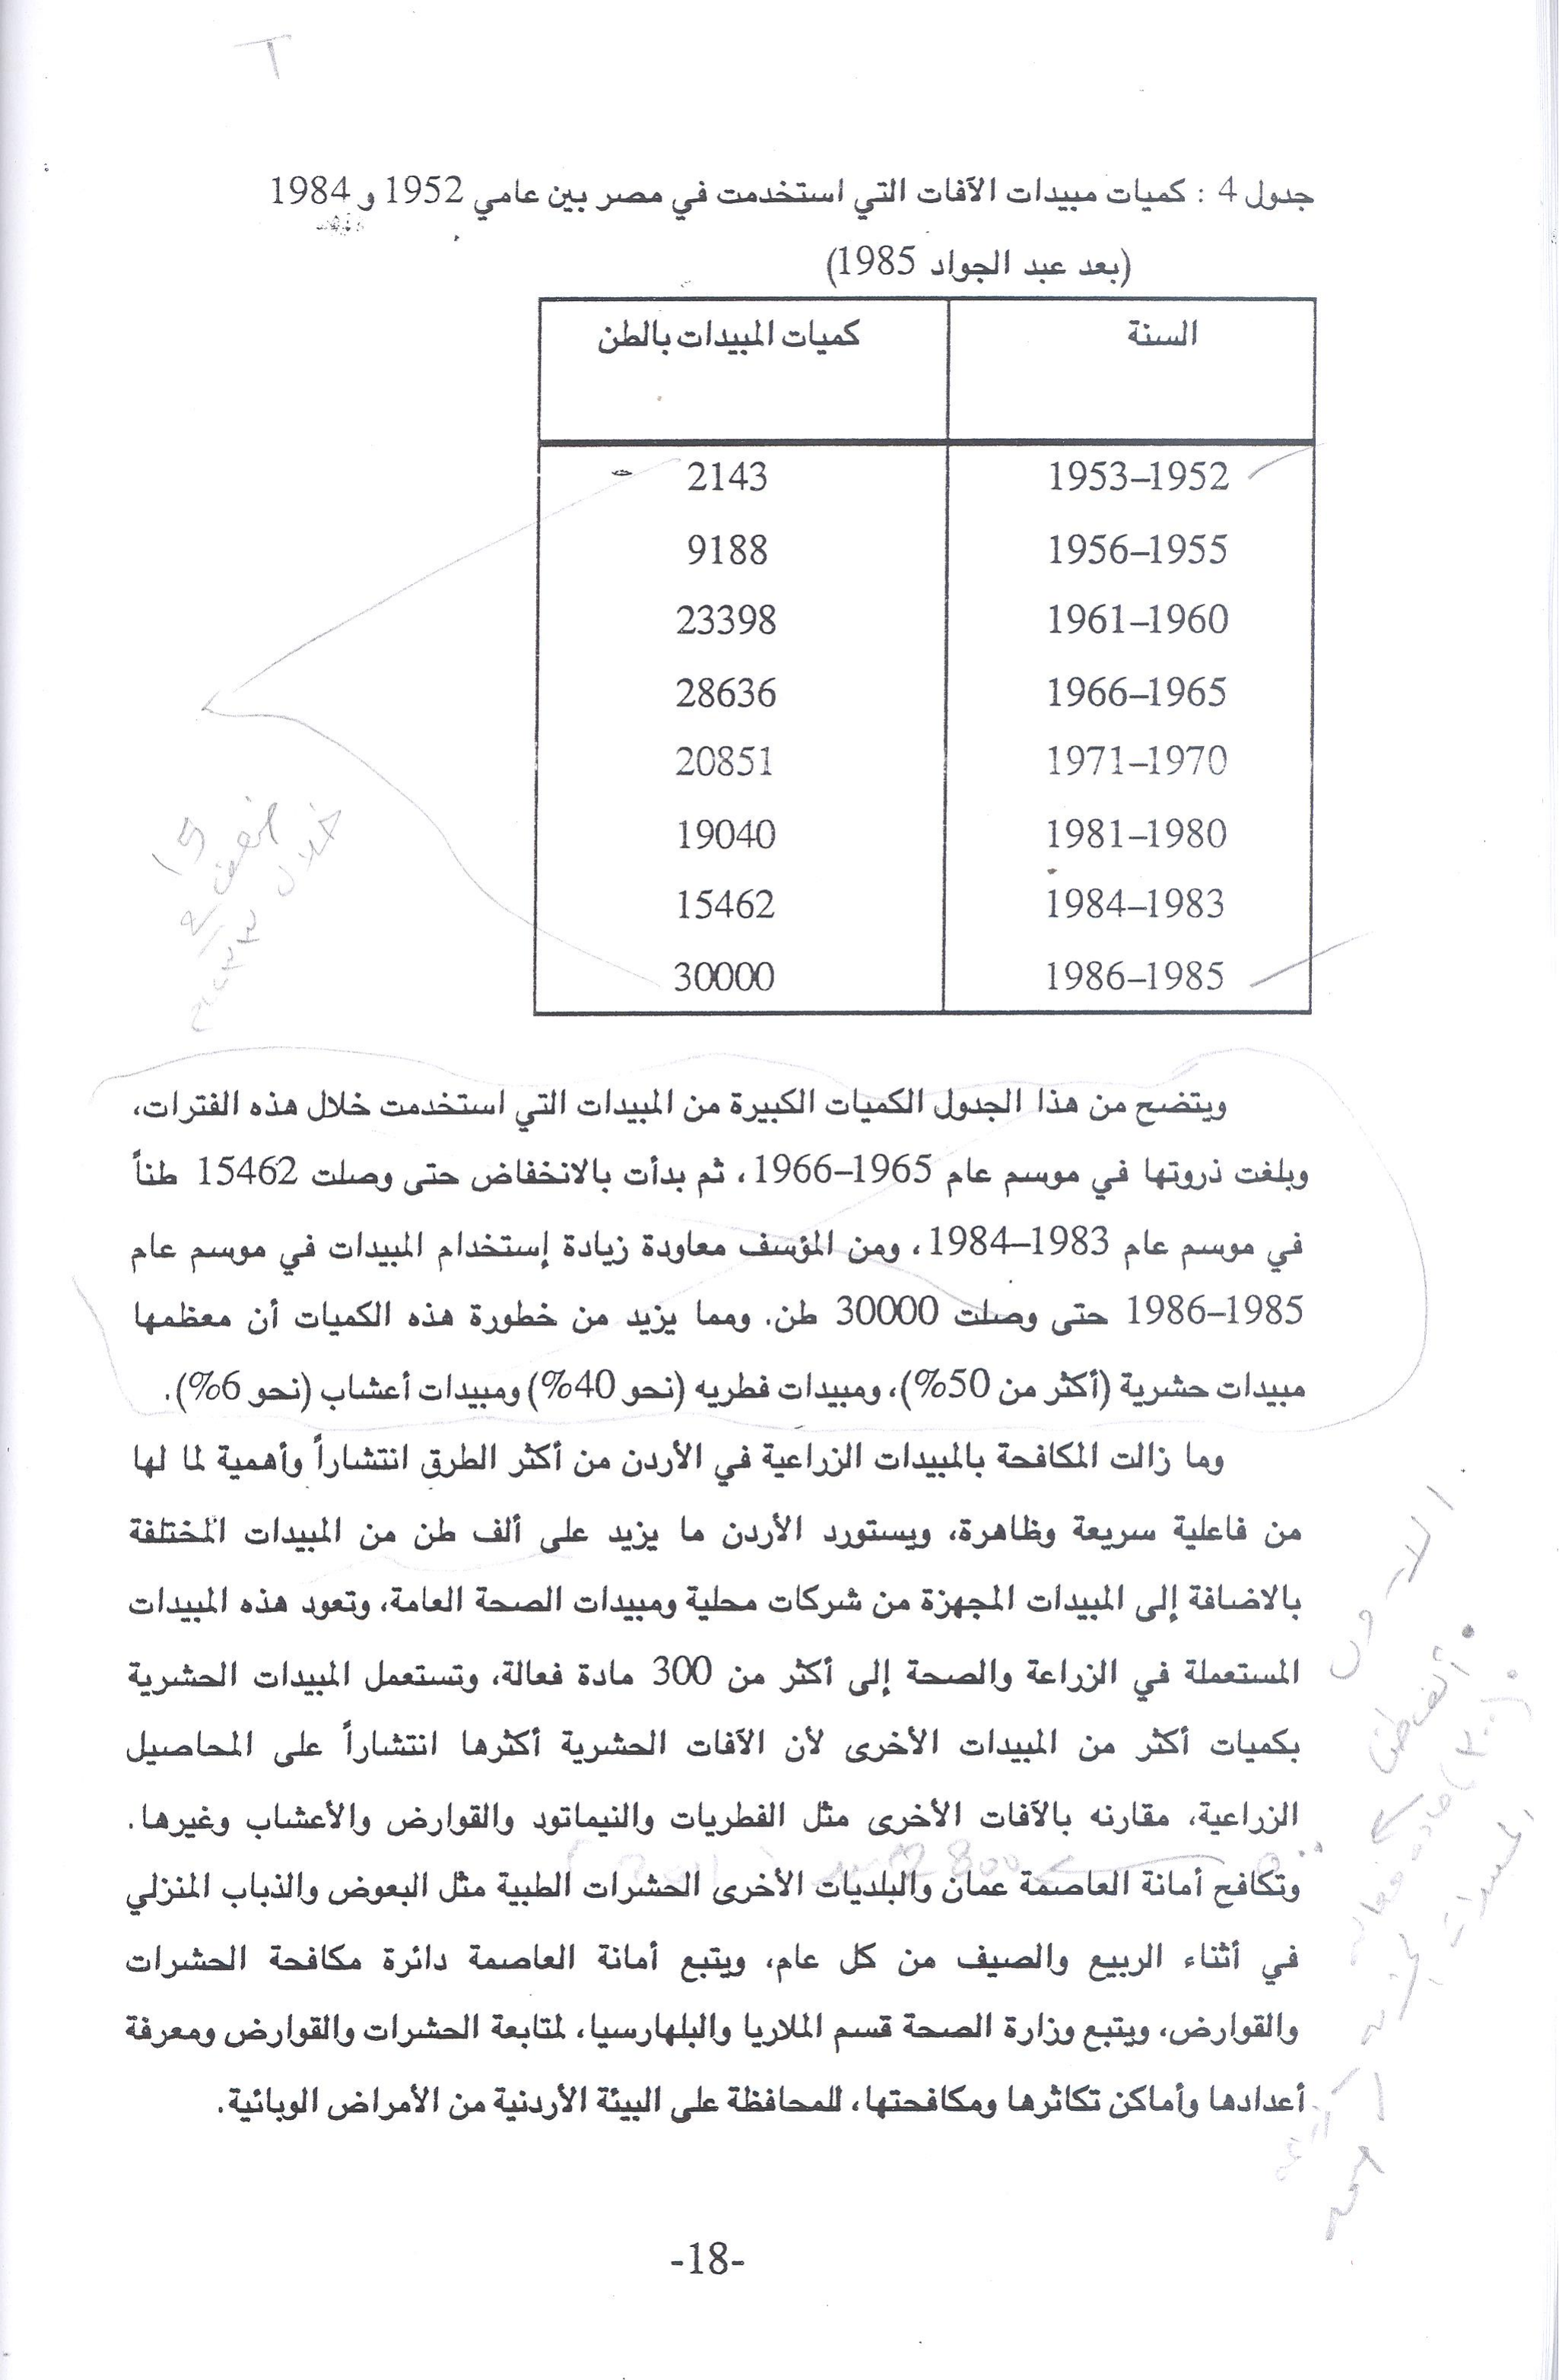 جدول 4 : كميات مبيدات الآفات التي استخدمت في مصر بين عامي 1952 و 1984
(بعد عبد الجواد 1985)
السنة كميات المبيدات بالطن
1952–1953 2143
1955–1956 9188
1960–1961 23398
1965–1966 28636
1970–1971 20851
1980–1981 19040
1983–1984 15462
1985–1986 30000
ويتضح من هذا الجدول الكميات الكبيرة من المبيدات التي استخدمت خلال هذه الفترات،
وبلغت ذروتها في موسم عام 1965–1966، ثم بدأت بالانخفاض حتى وصلت 15462 طناً
في موسم عام 1983–1984، ومن المؤسف معاودة زيادة إستخدام المبيدات في موسم عام
1985–1986 حتى وصلت 30000 طن. ومما يزيد من خطورة هذه الكميات أن معظمها
مبيدات حشرية (أكثر من 50%)، ومبيدات فطريه (نحو 40%) ومبيدات أعشاب (نحو 6%).
وما زالت المكافحة بالمبيدات الزراعية في الأردن من أكثر الطرق انتشاراً وأهمية لما لها
من فاعلية سريعة وظاهرة، ويستورد الأردن ما يزيد على ألف طن من المبيدات المختلفة
بالاضافة إلى المبيدات المجهزة من شركات محلية ومبيدات الصحة العامة، وتعود هذه المبيدات
المستعملة في الزراعة والصحة إلى أكثر من 300 مادة فعالة، وتستعمل المبيدات الحشرية
بكميات أكثر من المبيدات الأخرى لأن الآفات الحشرية أكثرها انتشاراً على المحاصيل
الزراعية، مقارنه بالآفات الأخرى مثل الفطريات والنيماتود والقوارض والأعشاب وغيرها.
وتكافح أمانة العاصمة عمان والبلديات الأخرى الحشرات الطبية مثل البعوض والذباب المنزلي
في أثناء الربيع والصيف من كل عام، ويتبع أمانة العاصمة دائرة مكافحة الحشرات
والقوارض، ويتبع وزارة الصحة قسم الملاريا والبلهارسيا، لمتابعة الحشرات والقوارض ومعرفة
أعدادها وأماكن تكاثرها ومكافحتها، للمحافظة على البيئة الأردنية من الأمراض الوبائية.
-18-